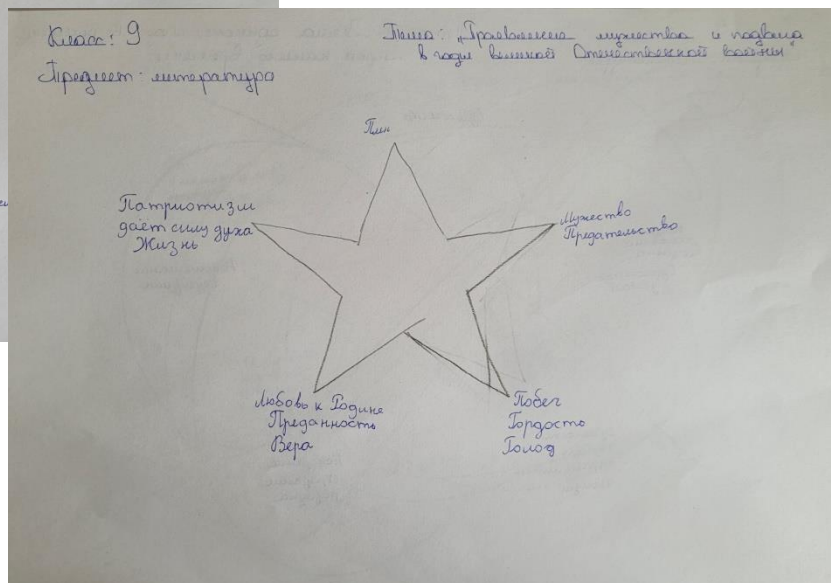 Класс: 9
Тема: „Проявление мужества и подвига
в годы великой Отечественной войны"
Предмет: литература
Плен
Патриотизм
даёт силу духа
Жизнь
Мужество
Предательство
Любовь к Родине
Преданность
Вера
Побег
Гордость
Голод